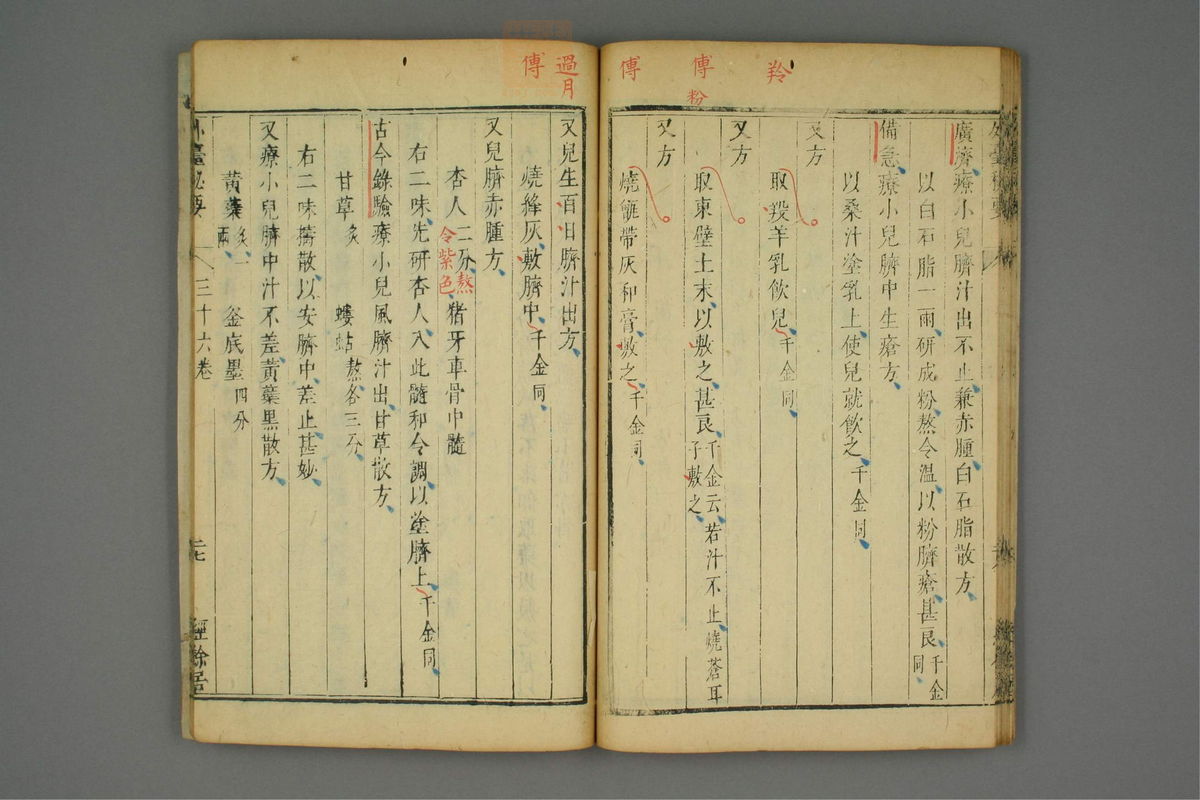 羚
傅
粉
傅
廣濟療小兒臍汁出不止兼赤腫白石脂散方
以白石脂一兩研成粉熬令温以粉臍瘡甚良千金
同
備急療小兒臍中生瘡方
以桑汁塗乳上使兒就飲之千金同
又方
取羖羊乳飲兒千金同
又方
取東壁土末以敷之甚良千金云若汁不止燒蒼耳
子敷之
又方
燒甑帶灰和膏敷之千金同
過月
傅
又兒生百日臍汁出方
燒絳灰敷臍中千金同
又兒臍赤腫方
杏人二分熬 猪牙車骨中髓
令紫色
右二味先研杏人入此髓和令調以塗臍上千金同
古今錄驗療小兒風臍汁出甘草散方
甘草炙 螻蛄熬各三分
右二味擣散以安臍中差止甚妙
又療小兒臍中汁不差黃蘗黑散方
黃蘗炙一兩 釜底墨四分
外臺秘要 三十六卷 二七 經餘居